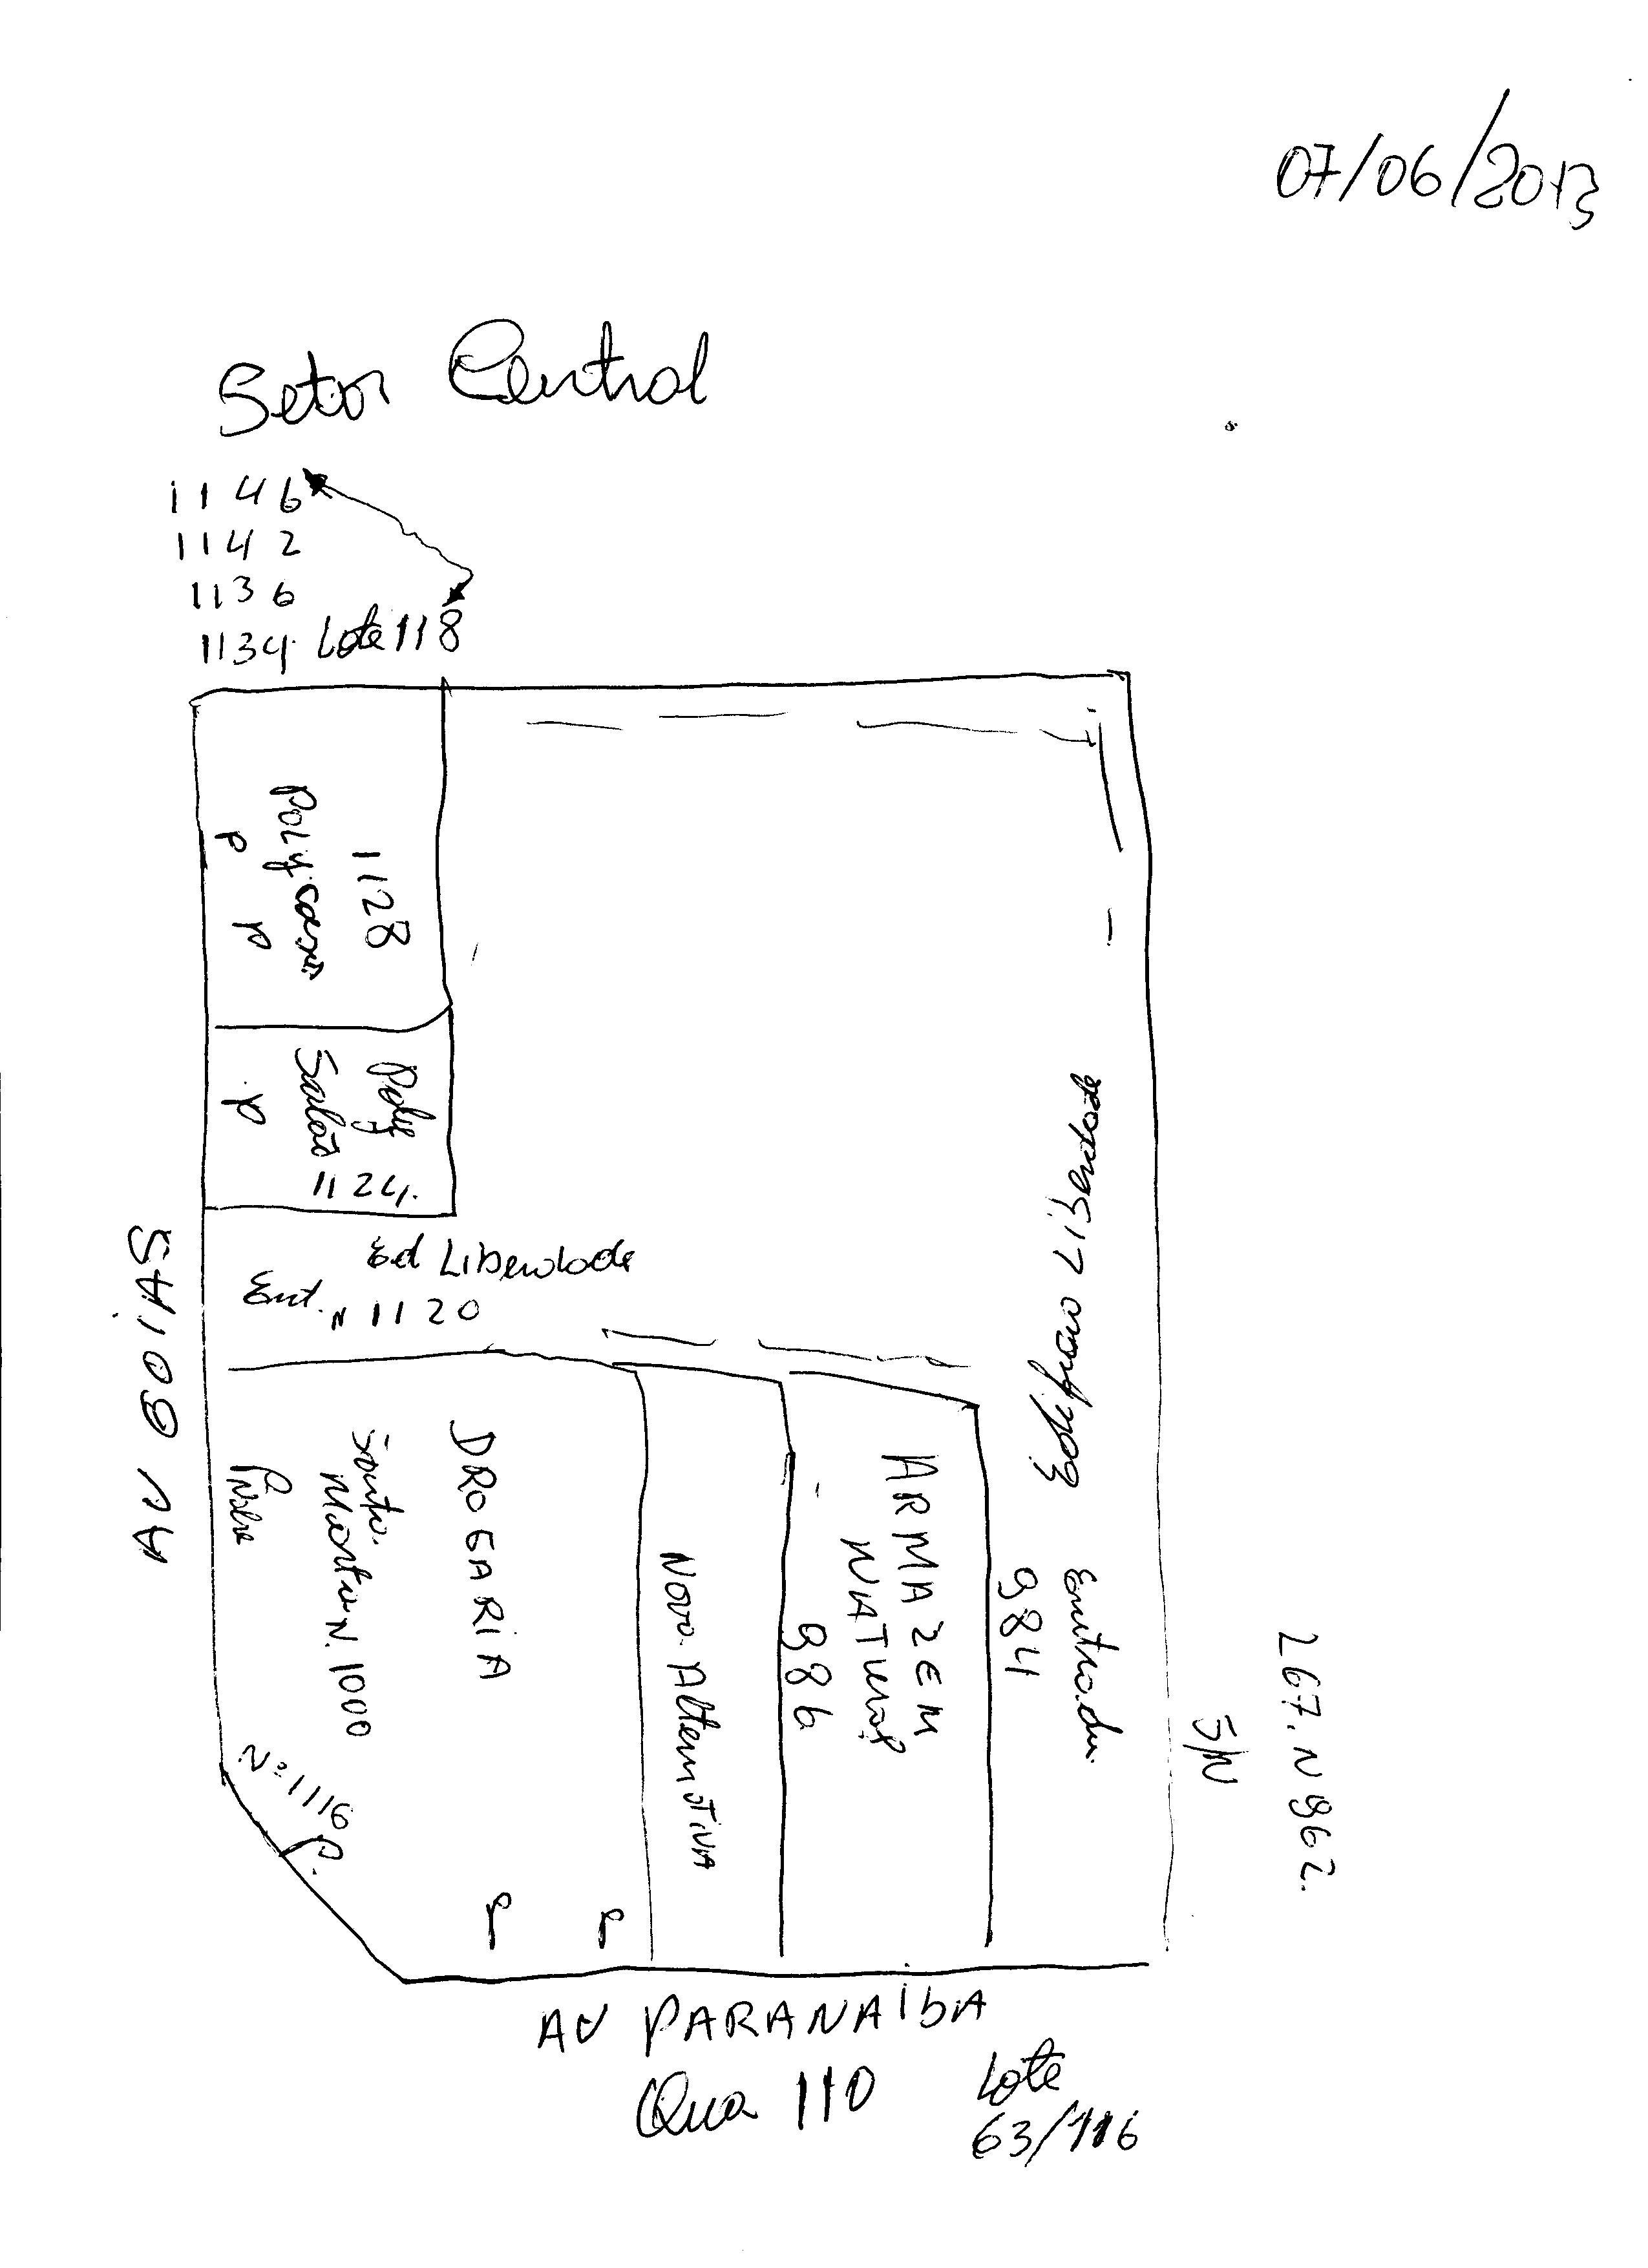 07/06/2013
Setor Central
1146
1142
1136
1134 Lote 118
1128
P P
Poly
Salão
1124
P
Ed Liberdade
Ent. N 1120
AV GOIÁS
Edifício Liberdade
Entrada
984
ARMAZEM
NATURAL
986
Nova Alternativa
DROGARIA
Santa
Marta N. 1000
N=1116
P.
P P
S/N
267. N 962.
AV PARANAÍBA
Qua 110
Lote
63/116